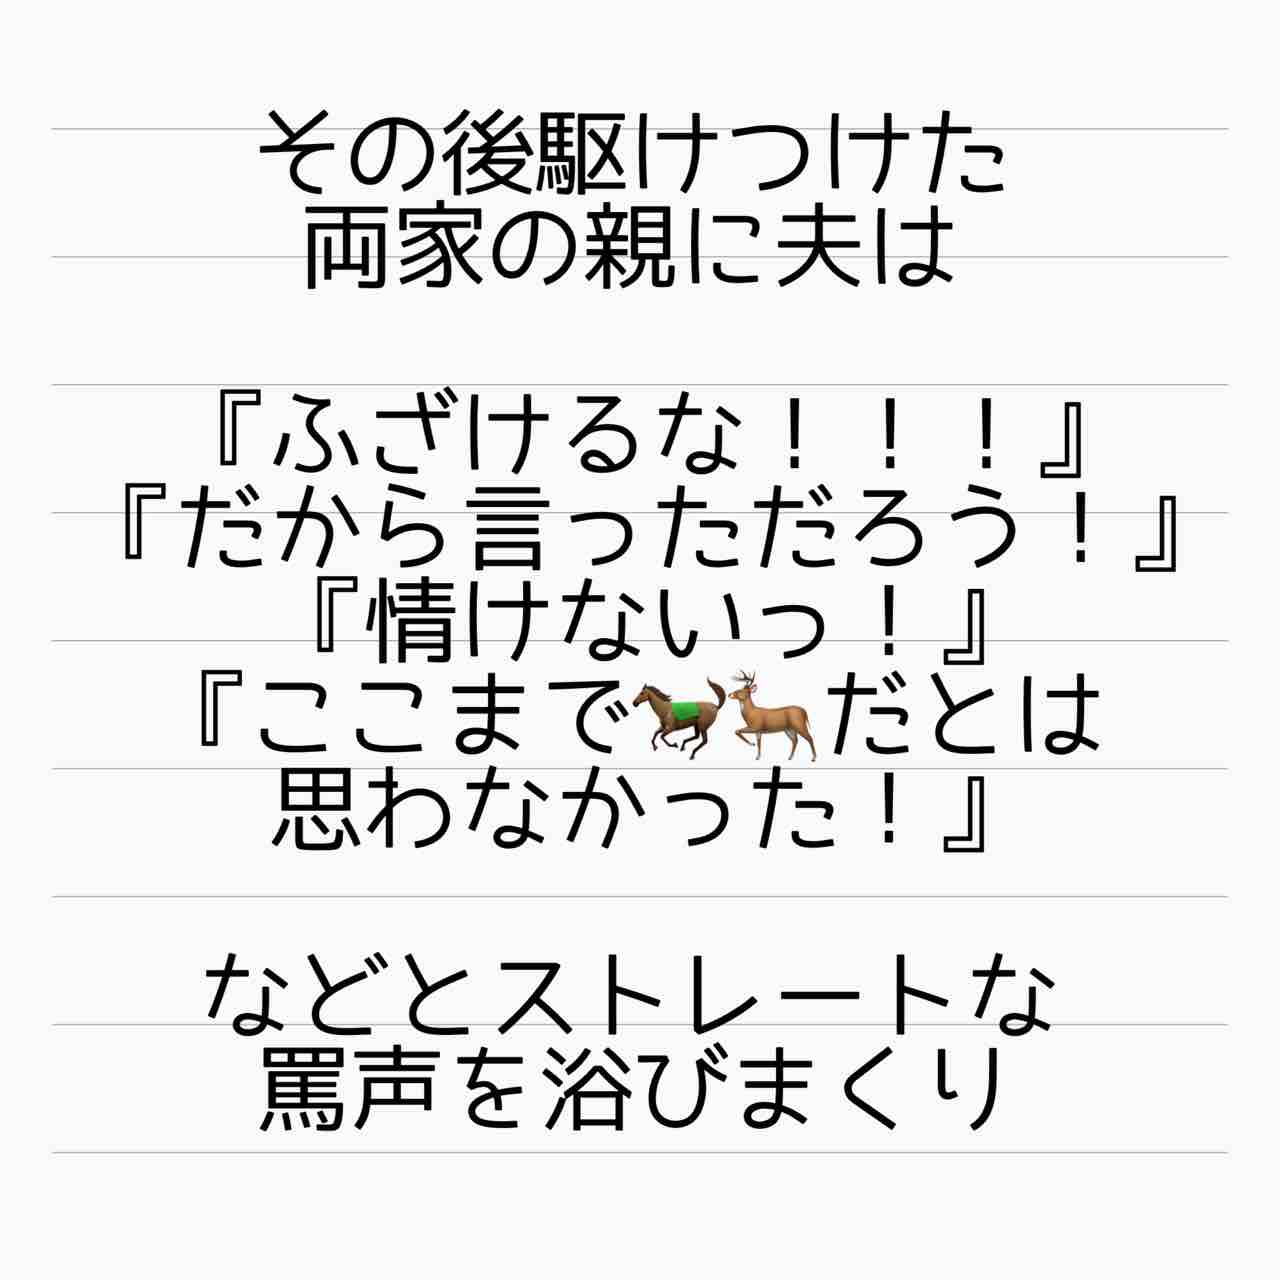 その後駆けつけた
両家の親に夫は
『ふざけるな！！！』
『だから言っただろう！』
『情けないっ！』
『ここまで🐎🦌だとは
思わなかった！』
などとストレートな
罵声を浴びまくり